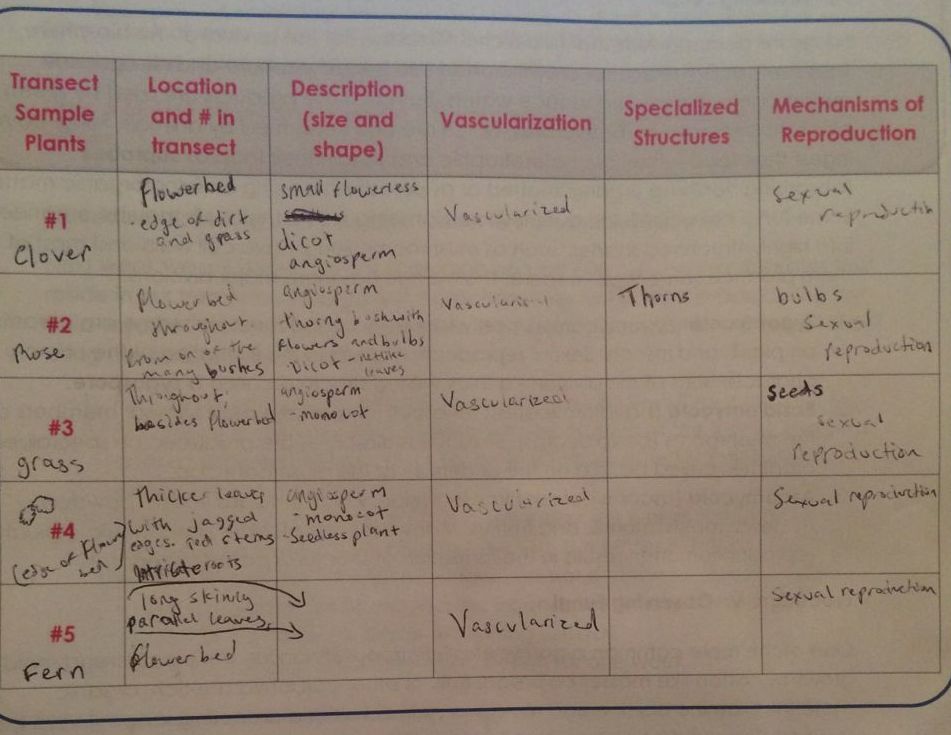 Transect
Sample
Plants
Location
and # in
transect
Description
(size and
shape)
Vascularization
Specialized
Structures
Mechanisms of
Reproduction
#1
Clover
flowerbed
-edge of dirt
and grass
small flowerless
dicot
angiosperm
Vascularized
Sexual
reproduction
#2
Rose
flowerbed
throughout
from on of the
many bushes
angiosperm
-thorny bush with
flowers and bulbs
-Dicot - netlike
leaves
Vascularized
Thorns
bulbs
Sexual
reproduction
#3
grass
Throughout,
besides flowerbed
angiosperm
-monocot
Vascularized
Seeds
sexual
reproduction
#4
(edge of flower
bed)
Thicker leaves
with jagged
edges. red stems
intricate roots
angiosperm
-monocot
-Seedless plant
Vascularized
Sexual reproduction
#5
Fern
long skinny
parallel leaves,
flowerbed
Vascularized
Sexual reproduction